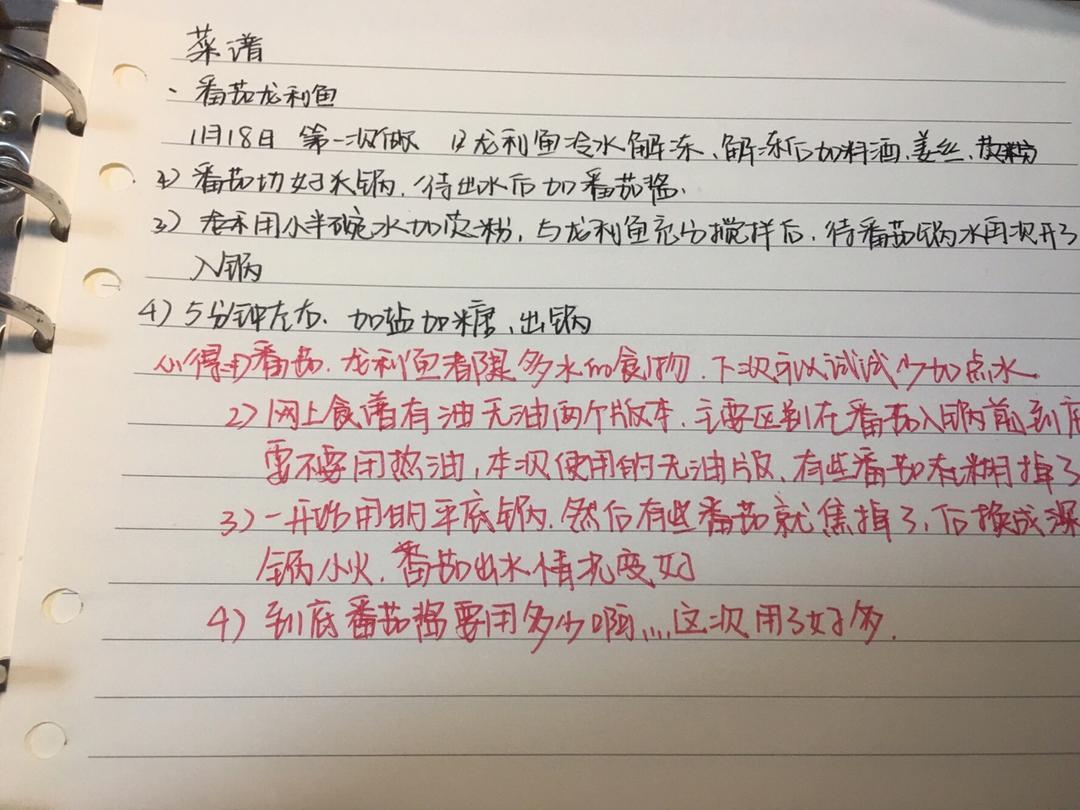 菜谱
、番茄龙利鱼
11月18日 第一次做 1)龙利鱼冷水解冻、解冻后加料酒、姜丝、
2)番茄切好入锅、待出水后加番茄酱、
3)用小半碗水加淀粉,与龙利鱼充分搅拌后,待番茄锅水再次开了
入锅
4)5分钟左右、加盐加糖、出锅
心得:1)番茄、龙利鱼都是多水的食物,下次可以试试少加点水
2)网上食谱有油无油两个版本,主要区别在番茄入锅前到底
要不要用热油,本次使用的无油版、有些番茄有糊掉了
3)一开始用的平底锅,然后有些番茄就焦掉了,后换成深
锅小火,番茄出水情况变好
4)到底番茄酱要用多少啊....这次用了好多.